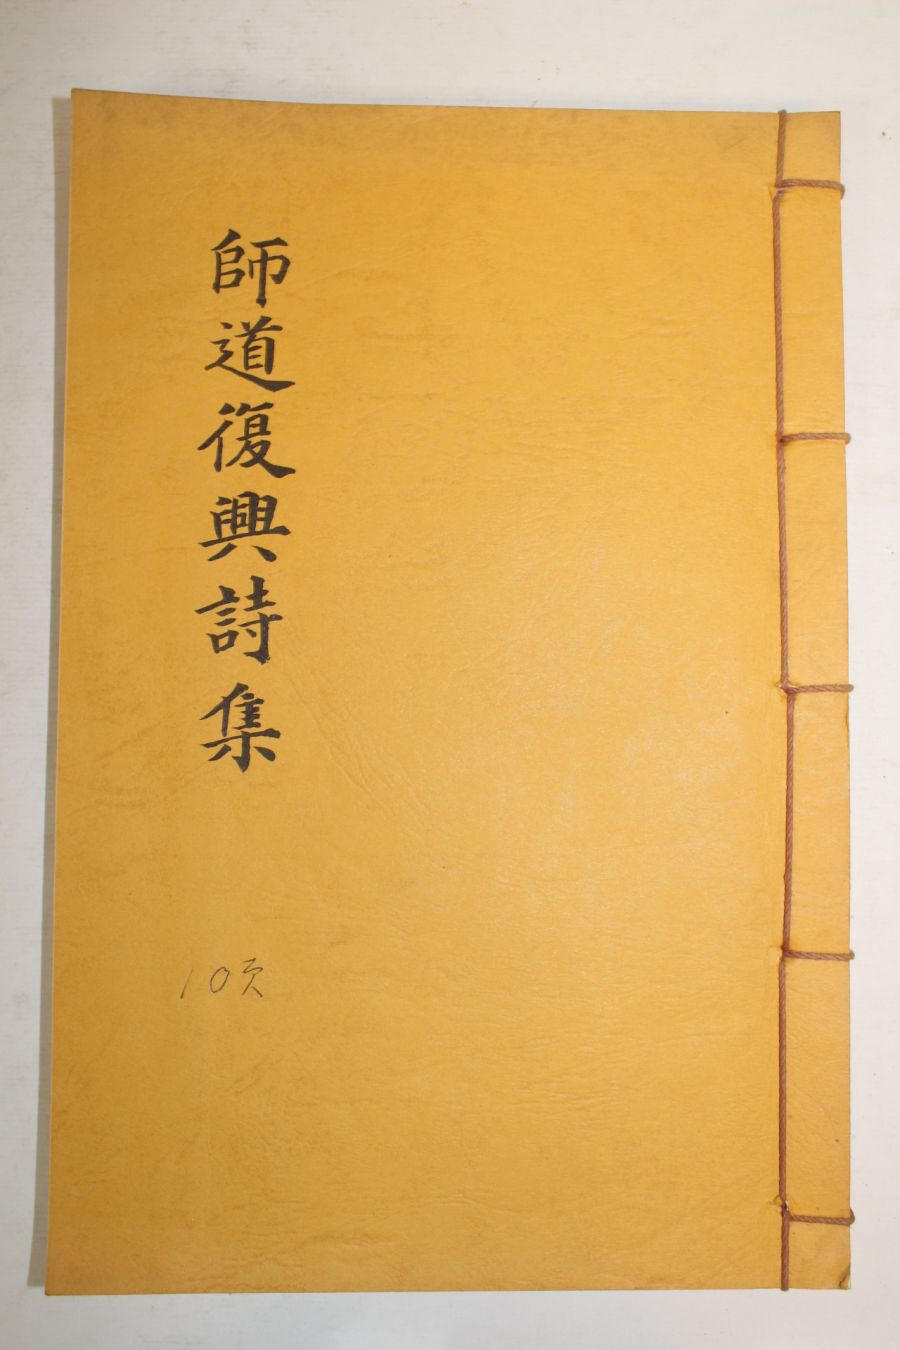 師道復興詩集
10页